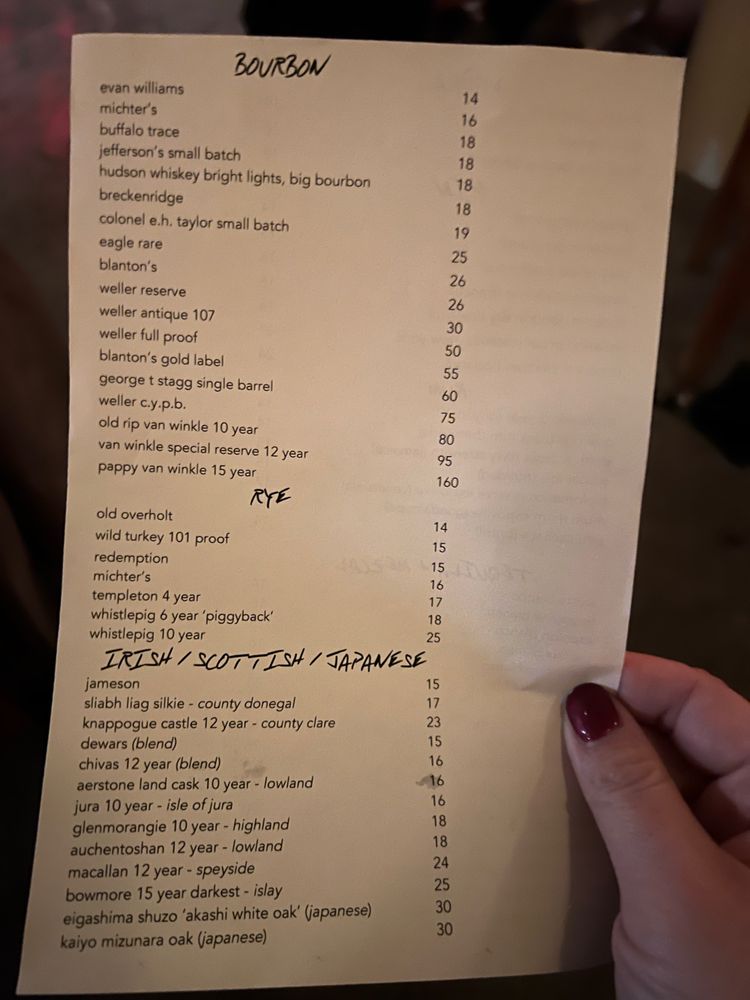 BOURBON
evan williams 14
michter's 16
buffalo trace 18
jefferson's small batch 18
hudson whiskey bright lights, big bourbon 18
breckenridge 18
colonel e.h. taylor small batch 19
eagle rare 25
blanton's 26
weller reserve 26
weller antique 107 30
weller full proof 50
blanton's gold label 55
george t stagg single barrel 60
weller c.y.p.b. 75
old rip van winkle 10 year 80
van winkle special reserve 12 year 95
pappy van winkle 15 year 160
RYE
old overholt 14
wild turkey 101 proof 15
redemption 15
michter's 16
templeton 4 year 17
whistlepig 6 year 'piggyback' 18
whistlepig 10 year 25
IRISH / SCOTTISH / JAPANESE
jameson 15
sliabh liag silkie - county donegal 17
knappogue castle 12 year - county clare 23
dewars (blend) 15
chivas 12 year (blend) 16
aerstone land cask 10 year - lowland 16
jura 10 year - isle of jura 16
glenmorangie 10 year - highland 18
auchentoshan 12 year - lowland 18
macallan 12 year - speyside 24
bowmore 15 year darkest - islay 25
eigashima shuzo 'akashi white oak' (japanese) 30
kaiyo mizunara oak (japanese) 30